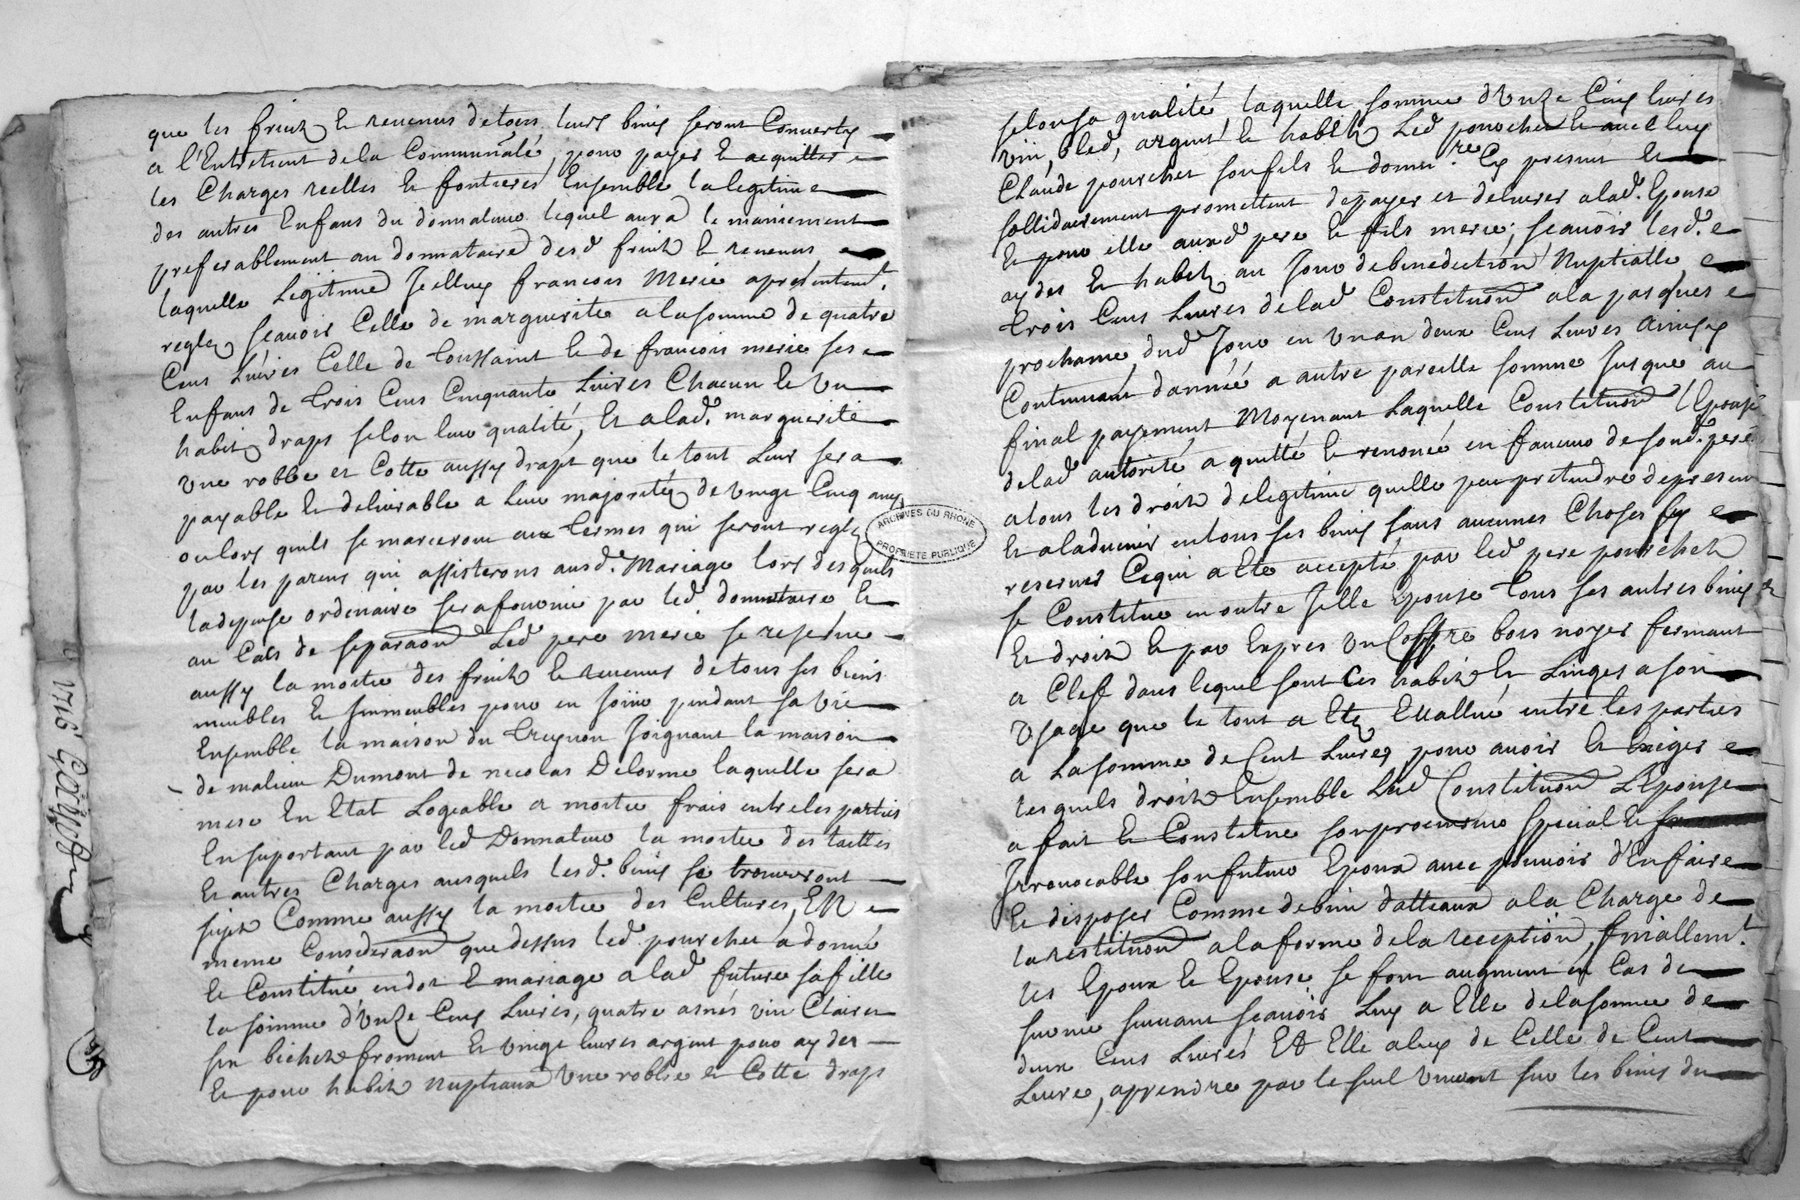 que les fruits et revenus de tous leurs biens seront Convertys
a l'Entretient de la Communauté, pour payer et acquitter
les Charges reelles et fontieres Ensemble la legitime
des autres Enfans du donnateur lequel aura le maniement
preferablement au donnataire desd. fruits et revenus
laquelle Legitime Icelluy francois Merie a presentemt.
reglez scauoir Celle de marguerite a la somme de quatre
Cens Livres Celle de toussaint et de francois merie ses
Enfans de trois Cens Cinquante Livres Chacun et vn
habits draps selon leur qualité, Et a lad. marguerite
vne robbe et Cotte aussy draps que le tout Leur sera
payable et delivrable a leur majorité de vingt Cinq ans
ou lors quils se marieront aux termes qui seront reglez
par les parens qui assisterons ausd. Mariage lors desquels
la depense ordenaire sera fournie par led. donnataire Et
au Cas de separaon Led pere merie se reserue
aussy la moitie des fruits et revenus de tous ses biens
meubles et Immeubles pour en Jouir pendant sa vie
Ensemble la maison du Joignant la maison
de malieu Dumont de necolas Delorme laquelle sera
mise En Etat Logeable a moitie frais entre les parties
En suportant par led Donnateur la moitie des tailles
Et autres Charges ausquels lesd. biens se trouueront
sujets Comme aussy la moitie des Cultures, EN
meme Consideraon que dessus led. pourchet a donné
Et Constitué en dot Et mariage a lad future sa fille
la somme d'Vnze Cens Livres, quatre asnés vin Clairet
six bichets froment Et vingt livres argent pour aydes
Et pour habits nuptiaux Vne robbe et Cotte draps
selon sa qualité, laquelle somme d'Vnze Cens livres
vin, bled, argent et habits Led pourchet et auec luy
Claude pourchet son fils Et donnre. Cy present Et
sollidairement promettent de payer et deliurer a lad. Epouse
Et pour elle ausd pere et fils merie; scauoir lesd.
aydes Et habits au Jour de benediction Nuptialle,
trois Cens Livres de lad Constituon a la pasques
prochaine dud Jour en vn an deux Cens Livres Ainsy
Continuant dannée a autre pareille somme Jusque au
final payement Moyenant Laquelle Constituon l'Epouse
de lad autorité a quitté Et renoncé en faueur de sond. pere
a tous les droits de legitime quelle peu pretendre de present
Et a laduenir en tous ses biens sans aucunes Choses sy
reseruer Ce qui a Ete accepté par led pere pourchet
se Constitue en outre Jelle Epouse tous ses autres biens
Et droits Et par Expres vn Coffre bois noyer fermant
a Clef dans lequel sont Ces habits Et Linges a son
Vsage que le tout a Ete Euallué entre les parties
a La somme de Cent Livres pour auoir Et Exiger
lesquels droits Ensemble Lad Constituon L'Epouse
a fait Et Constitue son procureur special Et
Irreuocable son futur Epoux auec pouuoir d'En faire
Et disposer Comme de bien dotteaux a la Charge de
la restituon a la forme de la reception, finallemt.
les Epoux Et Epouse se font augment en Cas de
suruie suiuant scauoir Luy a Elle de la somme de
deux Cens Livres Et Elle a luy de Celle de Cent
Livre, a prendre par le seul viuant sur les biens du
ARCHIVES DU RHONE
PROPRIETE PUBLIQUE
1715